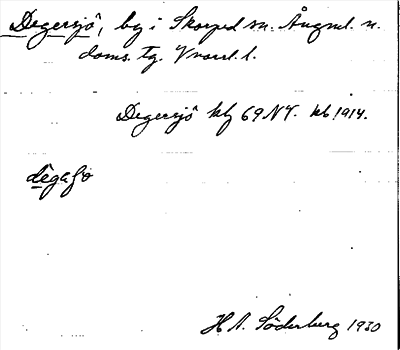 Degersjö, by i Skorped sn. Ångml. n.
doms. tg. Vnorrl. l.
Degersjö kbf 69 NV. kb 1914.
dègaʃö
H N. Söderberg 1930